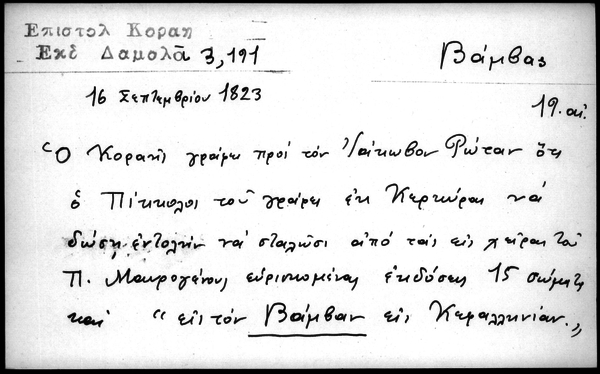 Επιστολ Κοραη
Εκδ Δαμαλᾶ 3,191
Βάμβας
16 Σεπτεμβρίου 1823
19. αἰ.
Ὁ Κοραῆς γράφει πρὸς τὸν Ἰάκωβον Ρώταν ὅτι
ὁ Πίκκολος τοῦ γράφει ἐκ Κερκύρας νὰ
δώσῃ ἐντολὴν νὰ σταλῶσι ἀπὸ τὰς εἰς χεῖρας τοῦ
Π. Μαυρογένους εὑρισκομένας ἐκδόσεις 15 σώματα
καὶ "εἰς τὸν Βάμβαν εἰς Κεφαλληνίαν."